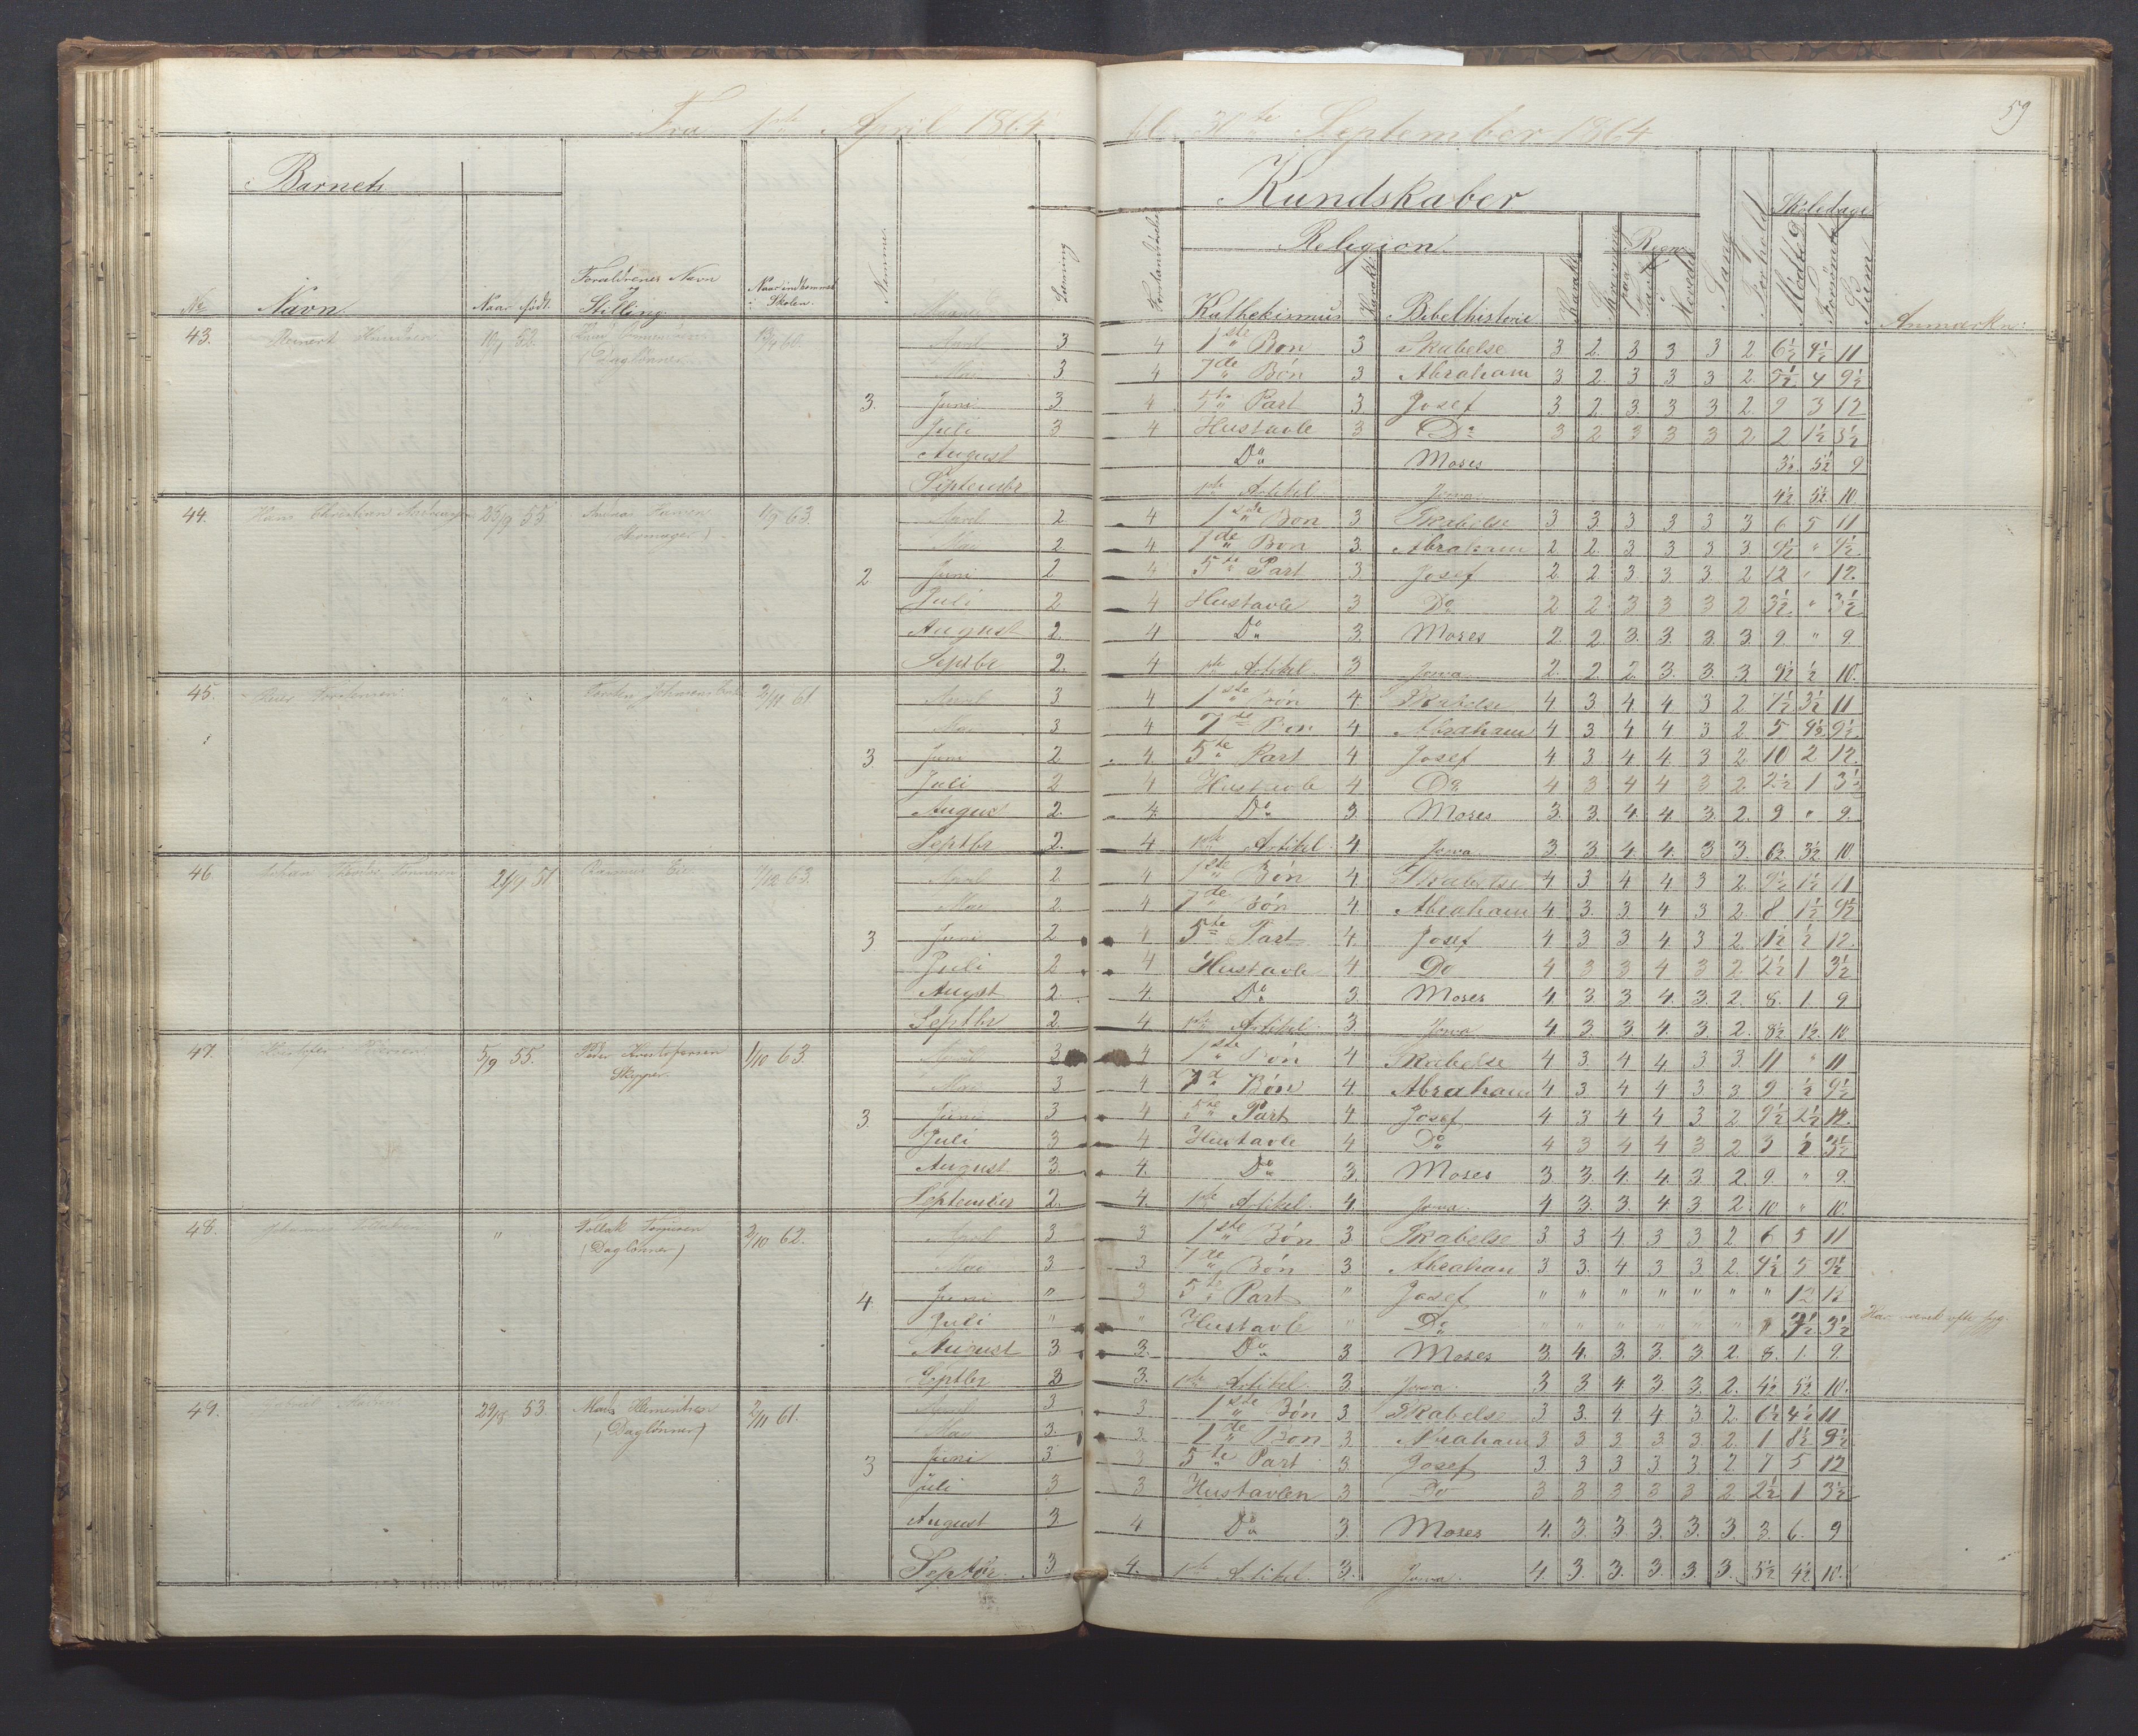 59
Fra 1ste April 1864 til 30te September 1864
Barnets Kundskaber Skoledage
Religion Regn.
No Navn Naar født. Forældrenes Navn og Stilling Naar indkommet i Skolen. Nummer Læsning Forstandsøvelse Kathekismus Karakt. Bibelhistorie Karakt. Skrivning paa Tavle i Hovedet Sang Forhold Mødte Forsømte Sum Anmærkn:
43. April 3 4 1ste Bøn 3 Skabelse 3 2. 3 3 3 2 6½ 4½ 11
Mai 3 4 7de Bøn 3 Abraham 3 2. 3 3 3 2. 5½ 4 9½
3. Juni 3 4 5te Part 3 Josef 3 2. 3. 3 3 2. 9 3 12
Juli 3 4 Hustavle 3 Do 3 2 3 3 3 2 2 1½ 3½
August Do Moses 3½ 5½ 9
Septembr 1ste Artikel 4½ 5½ 10
44. Hans Christian 25/9 55 1/9 63. April 2 4 1ste Bøn 3 Skabelse 3 3. 3 3 3 3 6 5 11
Mai 2 4 7de Bøn 3. Abraham 2 2. 3 3 3 3. 9½ " 9½
2 Juni 2 4 5te Part 3. Josef 2. 2 3. 3. 3. 2 12 " 12.
Juli 2 4 Hustavle 3 Do 2 2 3 3 3 2 3½ " 3½
August 2. 4 Do 3. Moses 2. 2 3. 3. 3. 3. 9. " 9
Septbr 2. 4 1ste Artikel 3 2. 2. 2. 3. 3. 3 9½ ½ 10.
45. " 2/11 61 April 3 4 1ste Bøn 4. Skabelse 4 3 4 4 3 2 7½ 3½ 11
Mai 3 4 7de Bøn 4 Abraham 4 3. 4 4 3 2. 5 4½ 9½
3 Juni 2 4 5te Part 4 Josef 4 3 4 4. 3 2 10 2 12.
Juli 2 4 Hustavle 4 Do 4 3 4 4 3 2. 2½ 1 3½
August 2. 4. Do 3. Moses 3. 3. 4. 4. 3. 2. 9 " 9.
Septbr 2. 4. 1ste Artikel 4. 3. 3. 4. 4. 3 3. 6½ 3½ 10
46. 57 63. April 2 4 1ste Bøn 4 Skabelse 4 3 4 4. 3 2. 9½ 1½ 11
Mai 2. 4 7de Bøn 4 Abraham 4 3. 3. 4 3 2 8 1½ 9½
3 Juni 2 4 5te Part 4 Josef 4 3 3 4. 3 2. 11½ ½ 12.
Juli 2 4 Hustavle 4 Do 4 3 3 4 3 2 2½ 1 3½
August 2. 4. Do 3. Moses 4. 3. 3 4. 3. 2. 8. 1. 9
Septbr 2. 4. 1ste Artikel 3. 4 3. 3 4. 3 2. 8½ 1½ 10
47. 5/9 55. Peder Kristofersen 1/10 63. April 3 4 1ste Bøn 4 Skabelse 4 3. 4 4 3 3. 11 " 11
Skipper Mai 3 4 7de Bøn 4 Abraham 4 3 4 4 3 3 9 ½ 9½
3. Juni 3 4 5te Part 4 Josef 4 3 4 4 3 2 9½ 2½ 12.
Juli 3 4 Hustavle 4 Do 4 3 4 4 3 2 3 ½ 3½
August 3. 4. Do 3. Moses 3. 3. 4. 4. 3 2 9. " 9.
September 2. 4. 1ste Artikel 4. 4 3. 3. 4. 3. 2. 10 " 10.
48. Johannes " Tollak 2/10 62. April 3 3 1ste Bøn 3 Skabelse 3 3 4 3 3 2 6 5 11
(Daglønner) Mai 3 3 7de Bøn 3 Abraham 3 3. 4 3 3 2. 4½ 5 9½
4. Juni " 3 5te Part " Josef " " " " " " " 12 12
Juli " " Hustavle " Do " " " " " " " 3½ 3½ Har været ofte syg.
August 3 3. Do 3 Moses 3. 4. 3. 3. 3. 2. 8. 1. 9.
Septbr 3 3. 1ste Artikel 3. 3 3 4. 3. 3. 2. 4½ 5½ 10.
49. Gabriel 53 2/11 61. April 3 3 1ste Bøn 3. Skabelse 3 3. 4 4. 3 2. 6½ 4½ 11
(Daglønner) Mai 3. 3. 7de Bøn 3 Abraham 3 3 3 3. 3. 2. 1 8½ 9½
3 Juni 3 3 5te Part 3. Josef 3. 3 3 3 3. 2 7 5 12
Juli 3 3 Hustavlen 3 Do 3 3 3 3 3 2 2½ 1 3½
August 3. 4 Do 3. Moses 4. 3. 3. 3. 3. 3. 3. 6. 9
Septbr. 3 4. 1ste Artikel 3. 4. 3. 3. 3. 3. 3. 5½ 4½ 10.